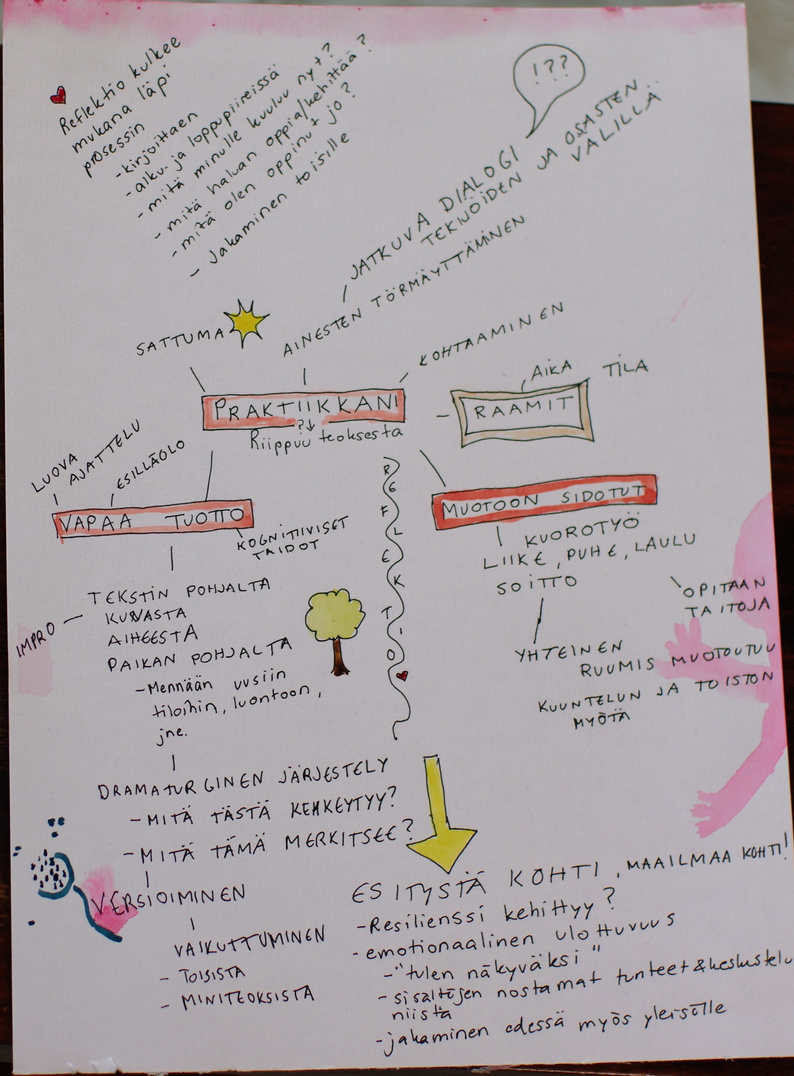 Reflektio kulkee
mukana läpi
prosessin
-kirjoittaen
-alku- ja loppupiireissä
- mitä minulle kuuluu nyt?
- mitä haluan oppia/kehittää?
- mitä olen oppinut jo?
- Jakaminen toisille
!??
JATKUVA DIALOGI
TEKIJÖIDEN JA OSASTEN
VÄLILLÄ
AINESTEN TÖRMÄYTTÄMINEN
SATTUMA
KOHTAAMINEN
PRAKTIIKKANI
?↓
Riippuu teoksesta
RAAMIT
AIKA
TILA
LUOVA
AJATTELU
ESILLÄOLO
VAPAA TUOTTO
KOGNITIIVISET
TAIDOT
TEKSTIN POHJALTA
KUVASTA
AIHEESTA
PAIKAN POHJALTA
IMPRO
-Mennään uusiin
tiloihin, luontoon,
jne.
DRAMATURGINEN JÄRJESTELY
-MITÄ TÄSTÄ KEHKEYTYY?
-MITÄ TÄMÄ MERKITSEE?
VERSIOIMINEN
VAIKUTTUMINEN
- TOISISTA
- MINITEOKSISTA
REFLEKTIO
MUOTOON SIDOTUT
KUOROTYÖ
LIIKE, PUHE, LAULU
SOITTO
OPITAAN
TAITOJA
YHTEINEN
RUUMIS MUOTOUTUU
KUUNTELUN JA TOISTON
MYÖTÄ
ESITYSTÄ KOHTI, MAAILMAA KOHTI!
-Resilienssi kehittyy?
-emotionaalinen ulottuvuus
-"tulen näkyväksi"
-sisältöjen nostamat tunteet & keskustelu
niistä
-jakaminen edessä myös yleisölle